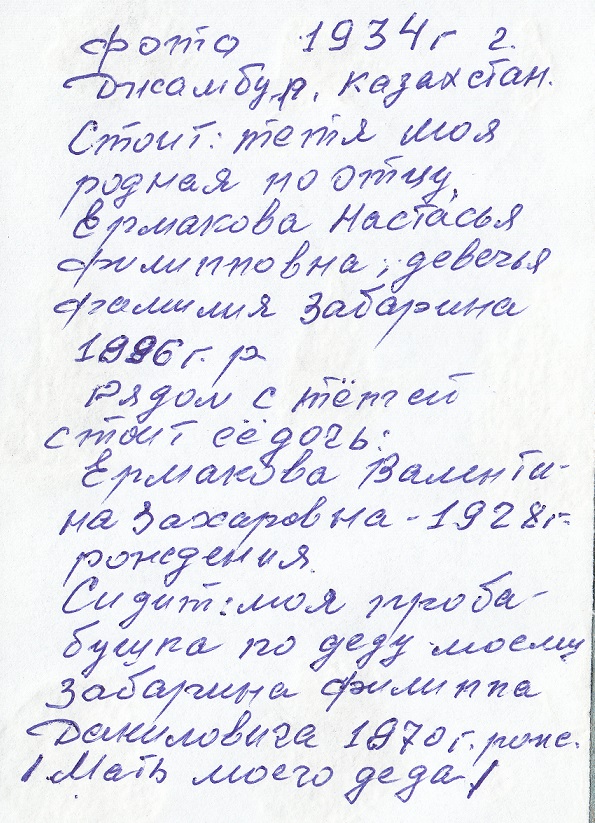 фото 1934 г г.
Джамбул, Казахстан.
Стоит: тетя моя
родная по отцу,
Ермакова Настасья
Филипповна; девечья
фамилия Забарина
1996 г. р
Рядом с тётей
стоит её дочь:
Ермакова Валенти-
на Захаровна - 1928 г.
рождения.
Сидит: моя праба-
бушка по деду моему
Забарина Филиппа
Даниловича 1970 г. рожд.
/Мать моего деда/